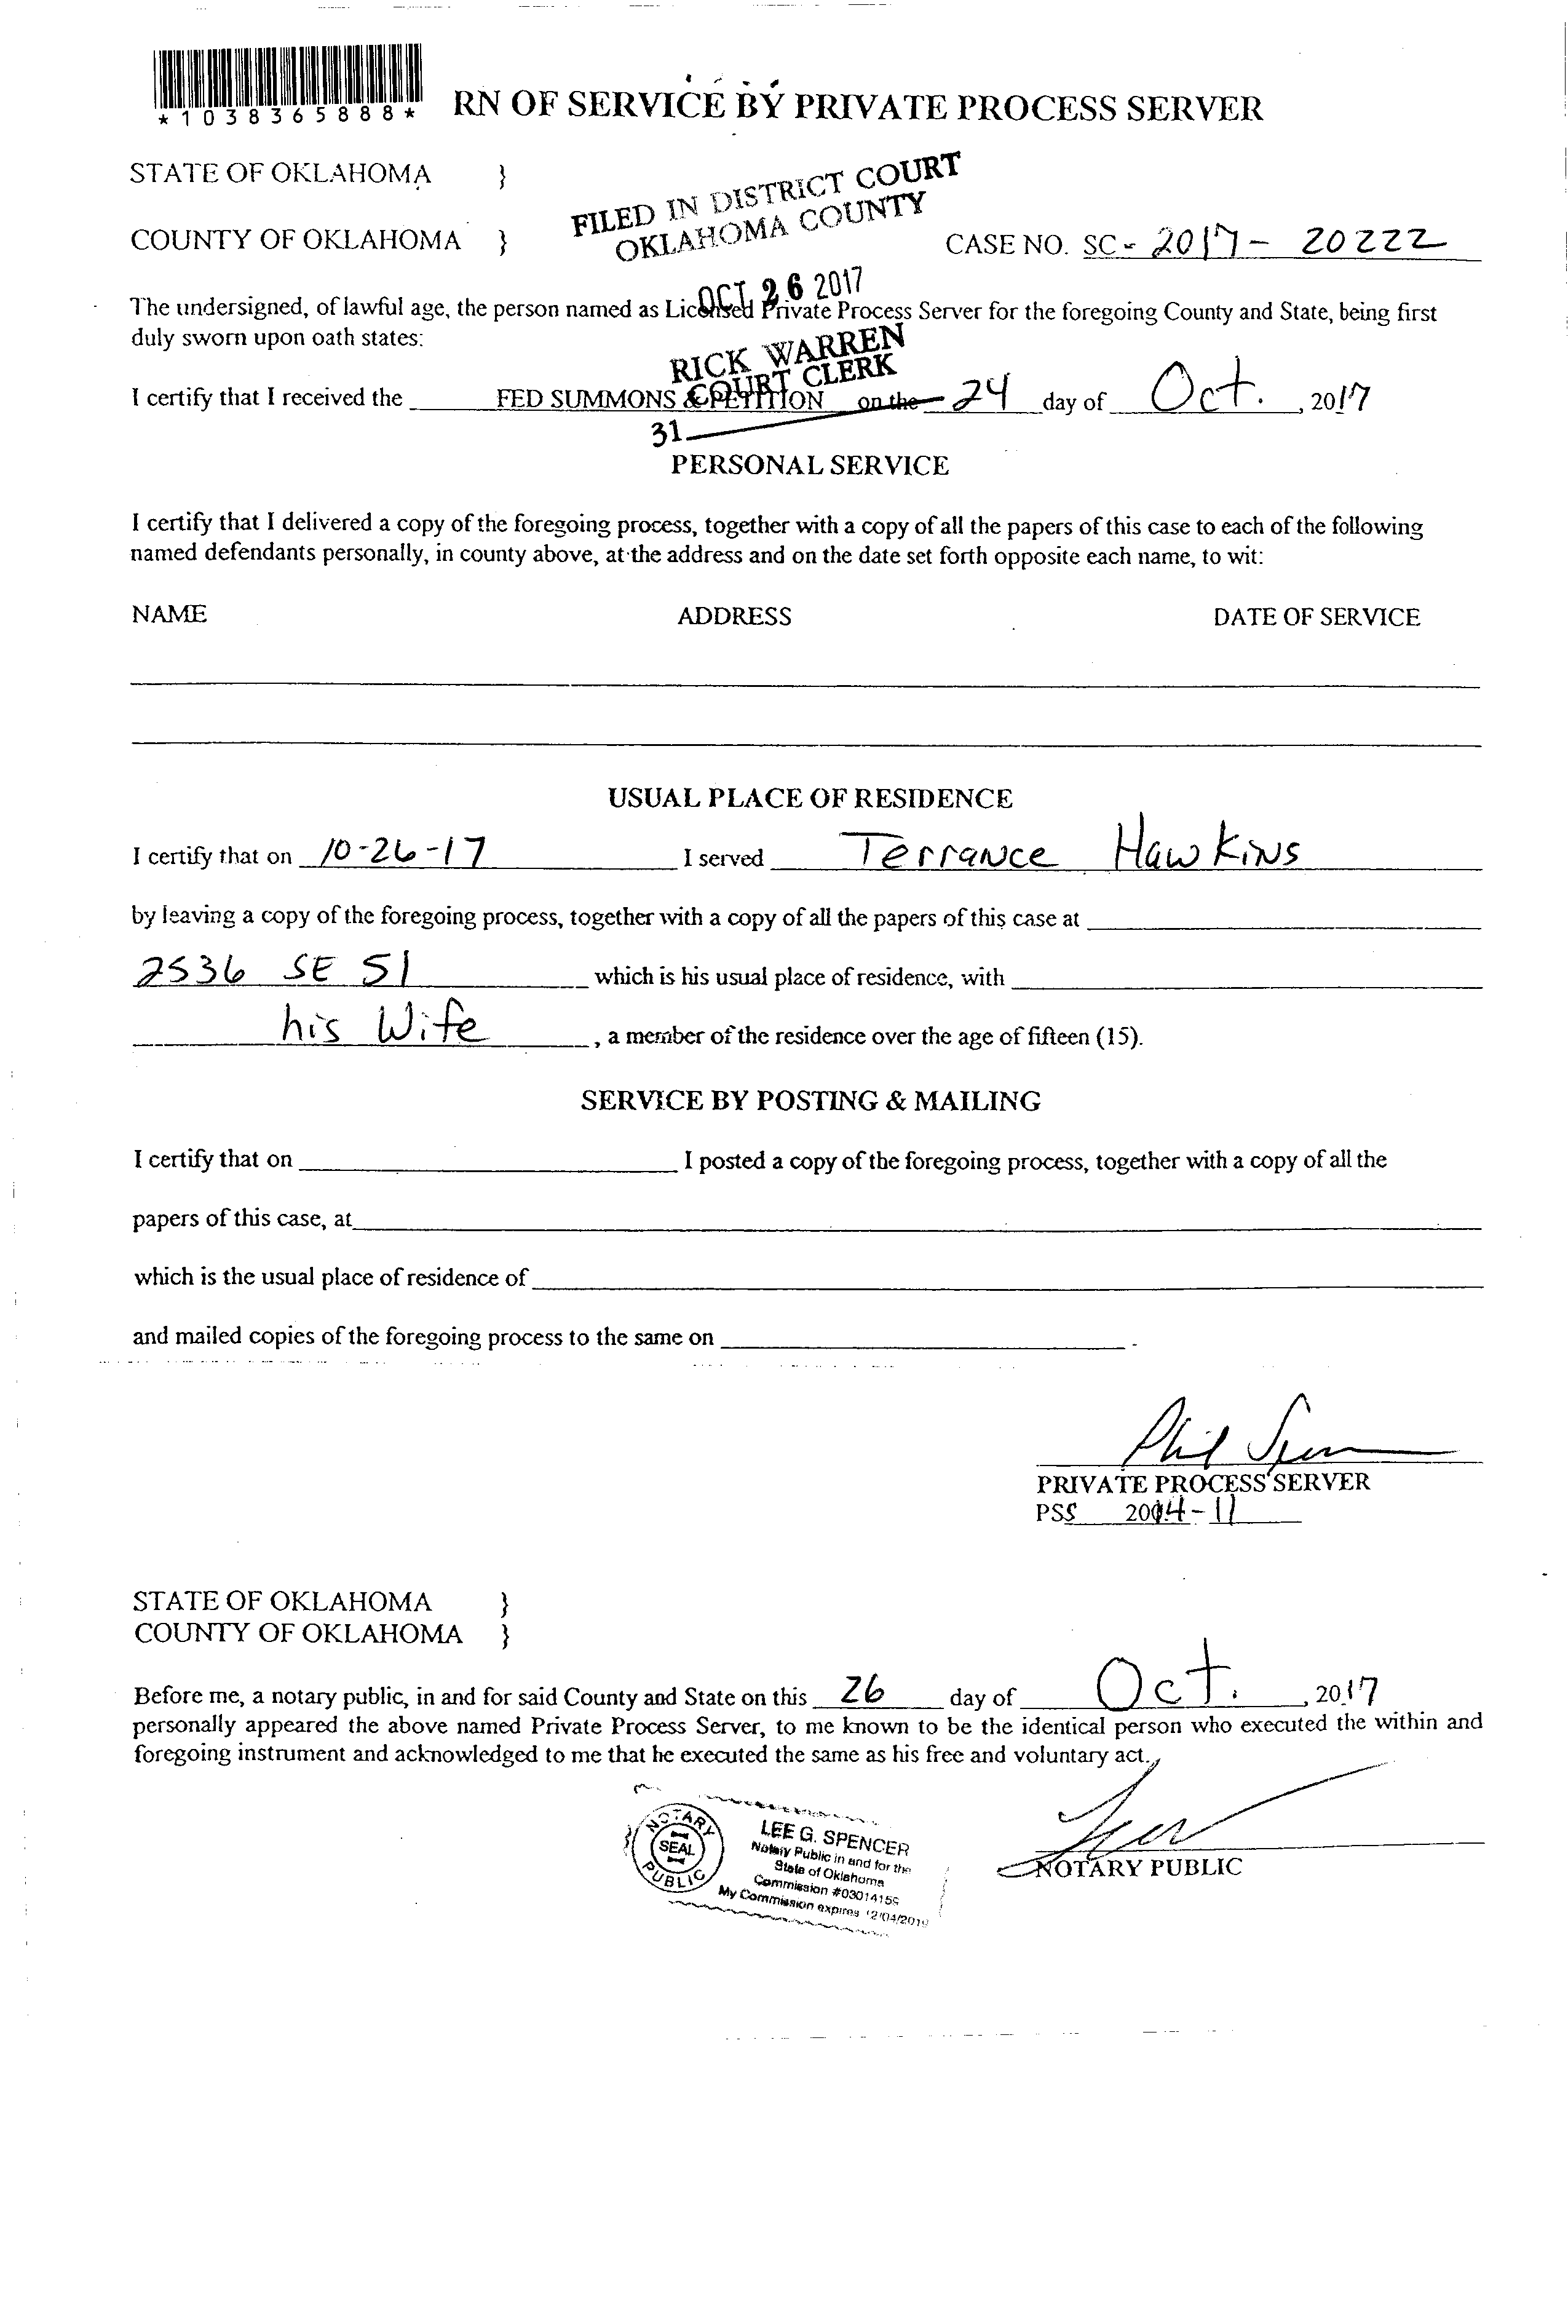 *1038365888*
RN OF SERVICE BY PRIVATE PROCESS SERVER
STATE OF OKLAHOMA }
FILED IN DISTRICT COURT
OKLAHOMA COUNTY
COUNTY OF OKLAHOMA }
CASE NO. SC - 2017 - 20222
OCT 26 2017
The undersigned, of lawful age, the person named as Licensed Private Process Server for the foregoing County and State, being first
duly sworn upon oath states:
RICK WARREN
COURT CLERK
I certify that I received the FED SUMMONS & PETITION on the 24 day of Oct. , 2017
31
PERSONAL SERVICE
I certify that I delivered a copy of the foregoing process, together with a copy of all the papers of this case to each of the following
named defendants personally, in county above, at the address and on the date set forth opposite each name, to wit:
NAME ADDRESS DATE OF SERVICE
USUAL PLACE OF RESIDENCE
I certify that on 10-26-17 I served Terrance Hawkins
by leaving a copy of the foregoing process, together with a copy of all the papers of this case at
2536 SE 51 which is his usual place of residence, with
his Wife , a member of the residence over the age of fifteen (15).
SERVICE BY POSTING & MAILING
I certify that on I posted a copy of the foregoing process, together with a copy of all the
papers of this case, at
which is the usual place of residence of
and mailed copies of the foregoing process to the same on .
Phil
PRIVATE PROCESS SERVER
PSS 2014-11
STATE OF OKLAHOMA }
COUNTY OF OKLAHOMA }
Before me, a notary public, in and for said County and State on this 26 day of Oct. , 2017
personally appeared the above named Private Process Server, to me known to be the identical person who executed the within and
foregoing instrument and acknowledged to me that he executed the same as his free and voluntary act.
NOTARY
SEAL
PUBLIC
LEE G. SPENCER
Notary Public in and for the
State of Oklahoma
Commission #03014159
My Commission expires 12/04/201
NOTARY PUBLIC